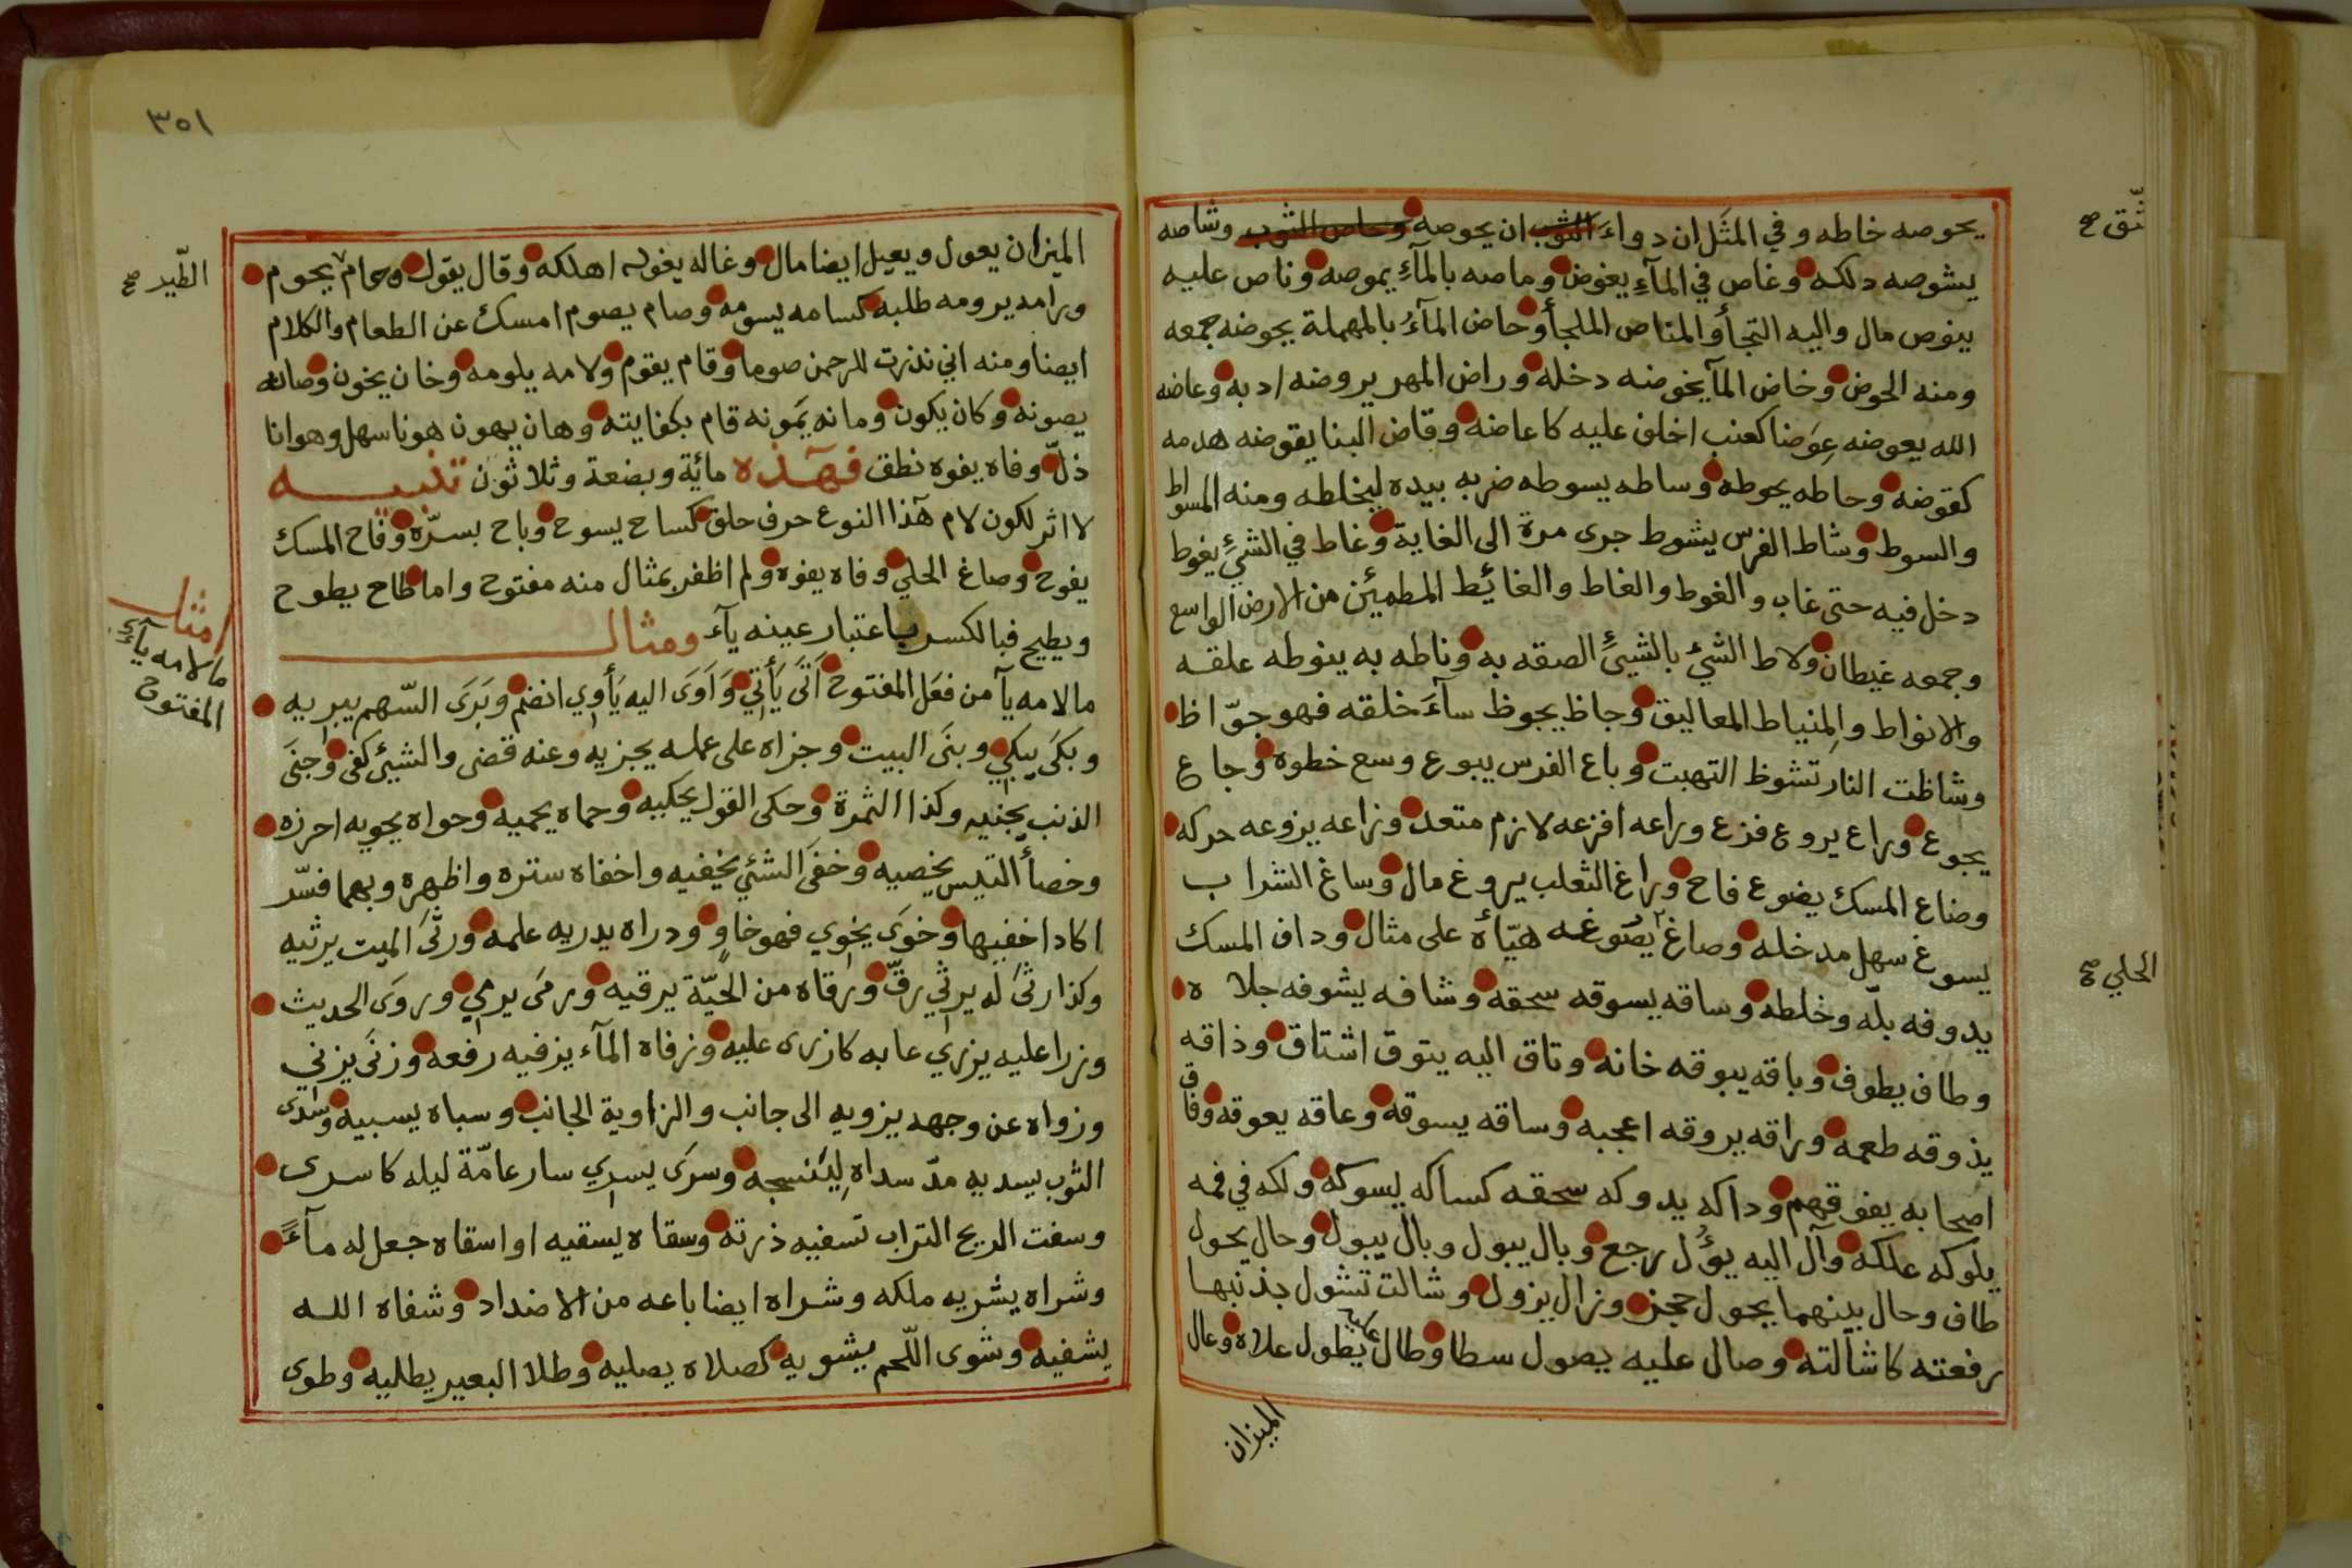 يحوصه خاطه وفي المثَل ان دواءَ الثوب ان يحوصه وحاص الثوب وشاصه
يشوصه دلكه وغاص في المآءِ يغوض وماصه بالمآءِ يموصه وناص عليه
ينوص مال واليه التجأ والمناص الملجأ وحاض المآءُ بالمهملة يحوضه جمعه
ومنه الحوض وخاض المآ يخوضه دخله وراض المهر يروضه ادبه وعاضه
الله يعوضه عِوَضا كعنب اخلف عليه كاعاضه وقاض البنا يقوضه هدمه
كقوضه وحاطه يحوطه وساطه يسوطه ضربه بيده ليخلطه ومنه المسواط
والسوط وشاط الفرس يشوط جرى مرة الى الغاية وغاط في الشيءِ يغوط
دخل فيه حتى غاب والغوط والغاط والغائط المطمئن من الارض الواسع
وجمعه غيطان ولاط الشيء بالشيءِ الصقه به وناطه به ينوطه علقه
والانواط والمِنياط المعاليق وجاظ يجوظ سآءَ خلقه فهو جوّاظ
وشاظت النار تشوظ التهبت وباع الفرس يبوع وسع خطوه وجاع
يجوع وراع يروع فزع وراعه افزعه لازم متعد وزاعه يزوعه حركه
وضاع المسك يضوع فاح وراغ الثعلب يروغ مال وساغ الشراب
يسوغ سهل مدخله وصاغ يصوغه هيّأه على مثال وداف المسك
يدوفه بلّه وخلطه وساقه يسوقه سحقه وشافه يشوفه جلاه
وطاف يطوف وباقه يبوقه خانه وتاق اليه يتوق اشتاق وذاقه
يذوقه طعمه وراقه يروقه اعجبه وساقه يسوقه وعاقه يعوقه وفاق
اصحابه يفوقهم وداكه يدوكه سحقه كساكه يسوكه ولكه في فمه
يلوكه علكه وآل اليه يؤُل رجع وبال يبول وبال يبول وحال يحول
طاف وحال بينهما يحول حجز وزال يزول وشالت تشول بذنبها
رفعته كاشالته وصال عليه يصول سطا وطال يطول علاه وعال
الميزان
الحلي صح
٣٥١
الميزان يعول ويعيل ايضا مال وغاله يغوله اهلكه وقال يقول وحام يحوم
الطّير صح
ورامه يرومه طلبه كسامه يسومه وصام يصوم امسك عن الطعام والكلام
ايضا ومنه اني نذرت للرحمن صوما وقام يقوم ولامه يلومه وخان يخون وصانه
يصونه وكان يكون ومانه يَمونه قام بكفايته وهان يهون هونا سهل وهوانا
ذلّ وفاه يفوه نطق فهٓذه مائة وبضعة وثلاثون تنبيه
لا اثر لكون لام هٓذا النوع حرف حلق كساح يسوح وباح بسرّه وفاح المسك
يفوح وصاغ الحلي وفاه يفوه ولم اظفر بمثال منه مفتوح واما طاح يطوح
ويطيح فبالكسر باعتبار عينه يآء ومثال
امثلة
مالامه يآءٌ
المفتوح
مالامه يآ من فعَل المفتوح اَتَى يَأتي وَاَوَى اليه يَأوي انضم وبَرَى السّهم يبريه
وبكَى يبكي وبنَى البيت وجزاه على عمله يجزيه وعنه قضى والشيئ كفى وجنَى
الذنب يجنيه وكذا الثمرة وحكى القول يحكيه وحماه يحميه وحواه يحويه احرزه
وخصأ التيس يخصيه وخفَى الشئي يخفيه واخفاه ستره واظهره وبهما فسّر
اكاد اخفيها وخوَى يخوي فهو خاوٍ ودراه يدريه علمه ورثَى الميت يرثيه
وكذا رثَى له يرثي رقّ ورقاه من الحيّة يرقيه ورمَى يرمي وروَى الحديث
وزرا عليه يزري عابه كازرى عليه وزفاه المآء يزفيه رفعه وزنَى يزني
وزواه عن وجهه يزويه الى جانب والزاوية الجانب وسباه يسبيه وسدى
الثوب يسديه مدّ سداه لينسجه وسرَى يسري سار عامّة ليله كاسرى
وسفت الريح التراب تسفيه ذرته وسقاه يسقيه او اسقاه جعل له مآءً
وشراه يشريه ملكه وشراه ايضا باعه من الاضداد وشفاه الله
يشفيه وشوى اللّحم يشويه كصلاه يصليه وطلا البعير يطليه وطوى